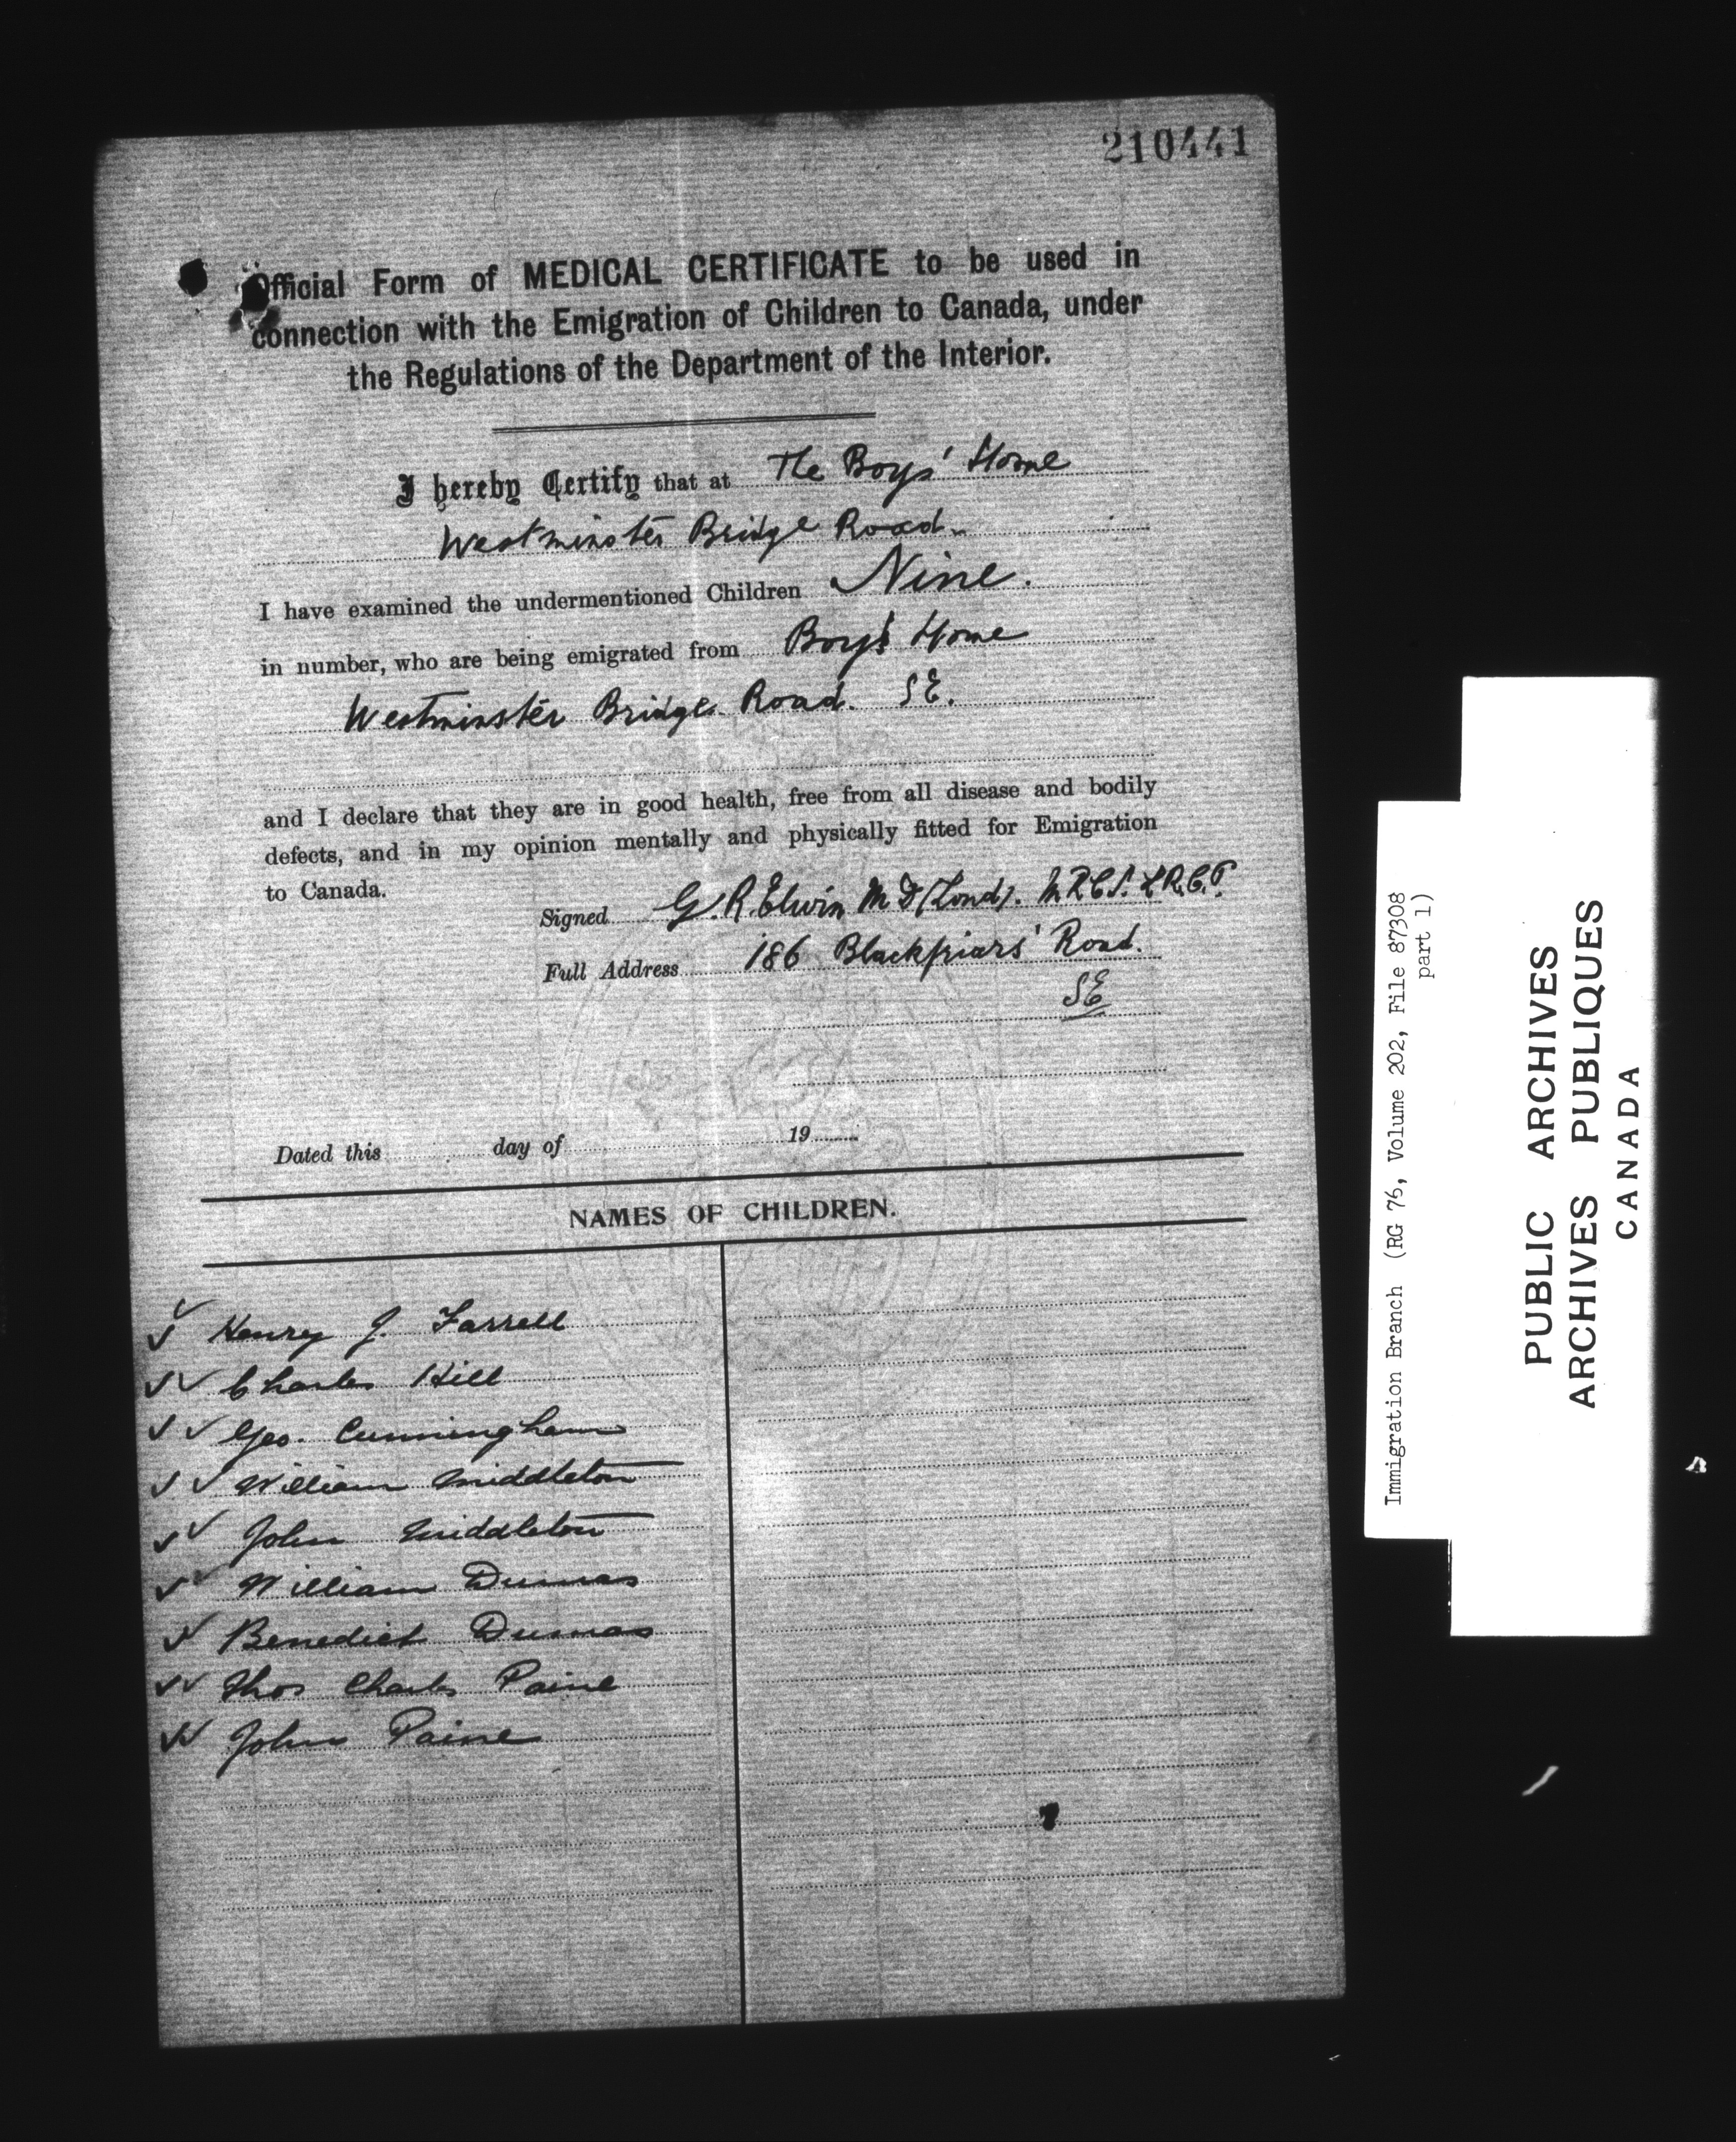 210441
Official Form of MEDICAL CERTIFICATE to be used in
connection with the Emigration of Children to Canada, under
the Regulations of the Department of the Interior.
I hereby Certify that at The Boys' Home
Westminster Bridge Road.
I have examined the undermentioned Children Nine.
in number, who are being emigrated from Boys Home
Westminster Bridge Road. S E.
and I declare that they are in good health, free from all disease and bodily
defects, and in my opinion mentally and physically fitted for Emigration
to Canada.
Signed G. R. Elwin M D (Lond). M R C S. L R. C. P.
Full Address 186 Blackfriars' Road.
SE
Dated this day of 19
NAMES OF CHILDREN.
Henry J. Farrell
Charles Hill
Geo. Cunningham
William Middleton
John Middleton
William Dumas
Benedict Dumas
Thos Charles Paine
John Paine
Immigration Branch (RG 76, Volume 202, File 87308
part 1)
PUBLIC ARCHIVES
ARCHIVES PUBLIQUES
CANADA